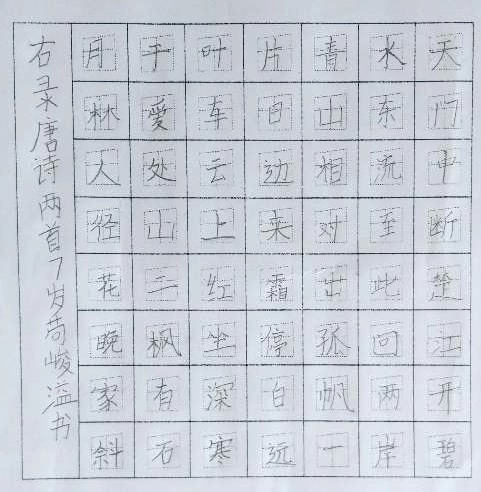 天门中断楚江开碧
水东流至此回两岸
青山相对出孤帆一
片日边来霜停白远
叶车云上红坐深寒
于愛处山二枫有石
月林人径花晚家斜
右录唐诗两首7岁苟峻溢书